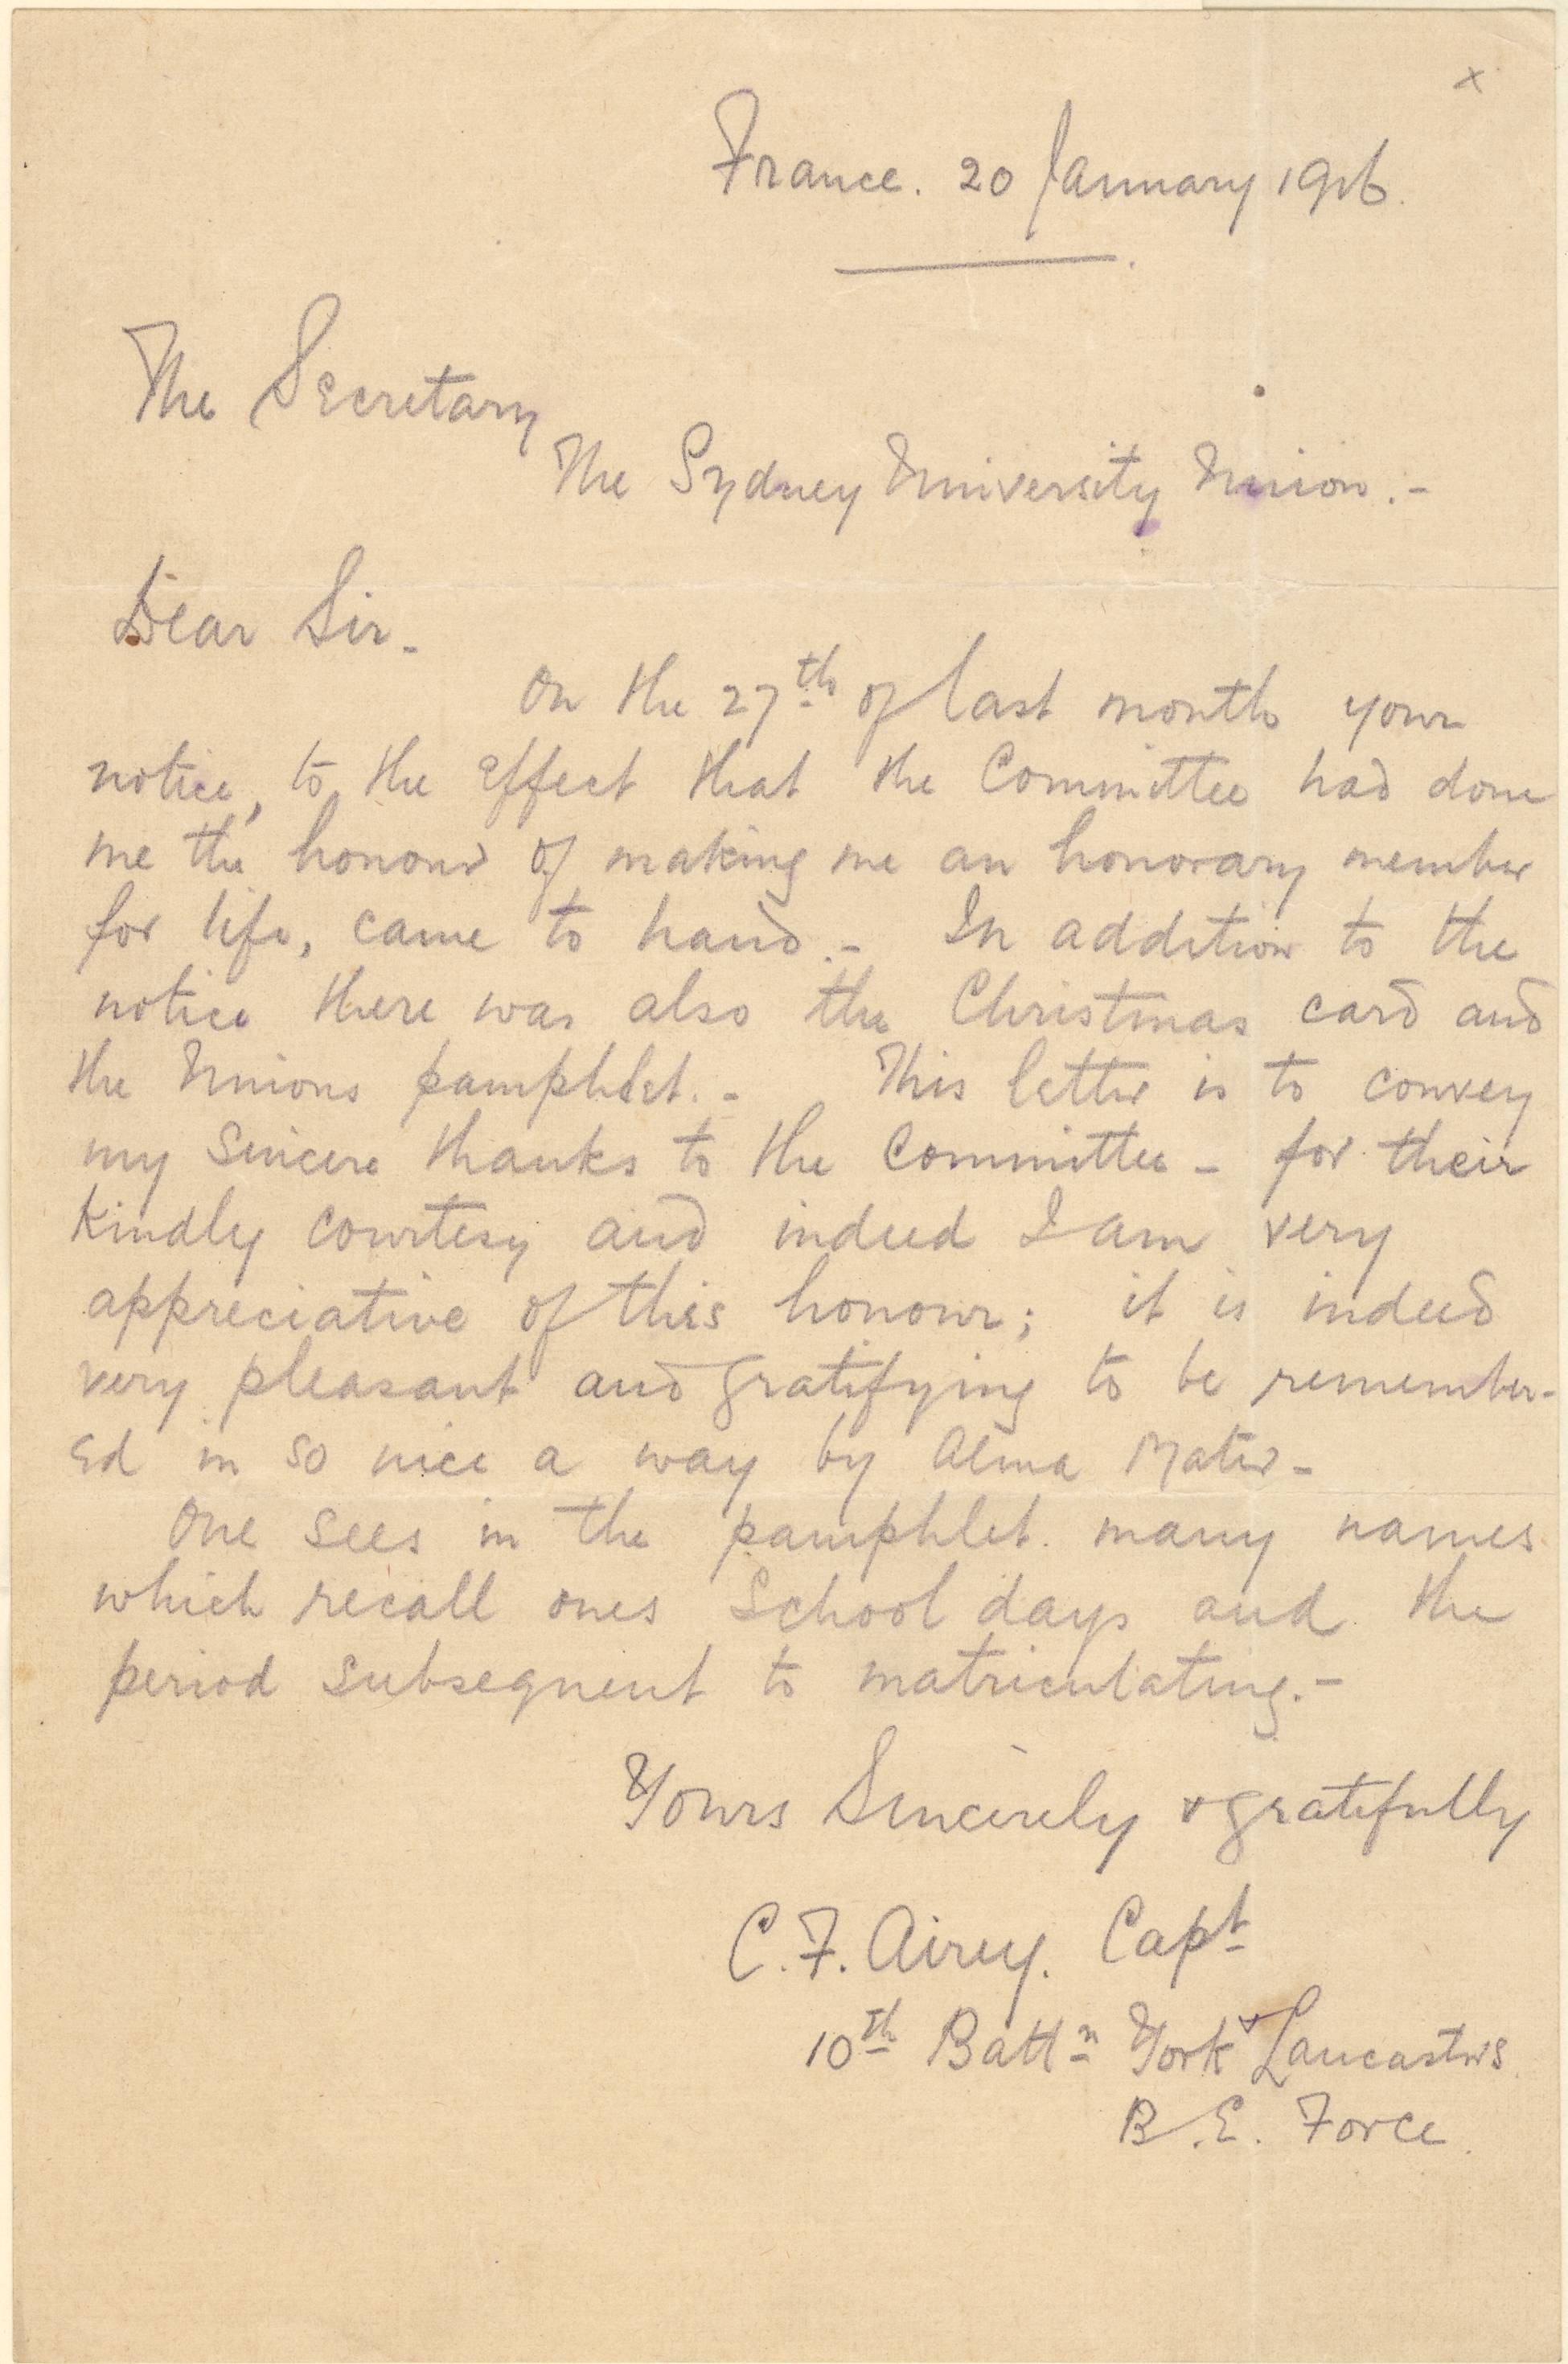 x
France. 20 January 1916.
The Secretary
The Sydney University Union.-
Dear Sir-
On the 27th of last month your
notice, to the effect that the Committee had done
me the honour of making me an honorary member
for life, came to hand.- In addition to the
notice there was also the Christmas card and
the Unions pamphlet.- This letter is to convey
my sincere thanks to the Committee - for their
kindly courtesy and indeed I am very
appreciative of this honour; it is indeed
very pleasant and gratifying to be remember-
ed in so nice a way by Alma Mater-
One sees in the pamphlet. many names
which recall ones School days and the
period subsequent to matriculating.-
Yours Sincerely & gratefully
C.F. Airey. Capt
10th Battn York & Lancasters
B.E. Force.